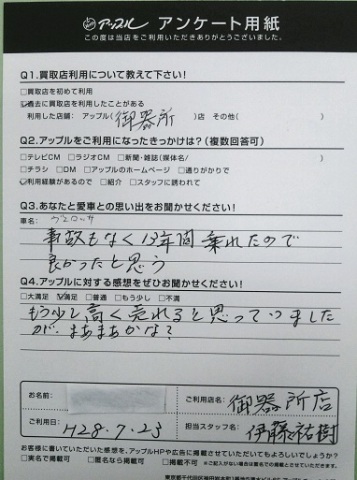 アップル アンケート用紙
この度は当店をご利用いただきありがとうございました。
Q1.買取店利用について教えて下さい!
□買取店を初めて利用
☑過去に買取店を利用したことがある
利用した店舗: アップル( 御器所 )店 その他( )
Q2.アップルをご利用になったきっかけは?(複数回答可)
□テレビCM □ラジオCM □新聞・雑誌(媒体名/ )
□チラシ □DM □アップルのホームページ □通りがかりで
☑利用経験があるので □紹介 □スタッフに誘われて
Q3.あなたと愛車との思い出をお聞かせください!
車名:
事故もなく13年間乗れたので
良かったと思う
Q4.アップルに対する感想をぜひお聞かせください!
□大満足 ☑満足 □普通 □もう少し □不満
もう少し高く売れると思っていました
が、まあまあかな?
お名前:
ご利用店名: 御器所店
ご利用日: H28.7.23
担当スタッフ名: 伊藤祐樹
お客様に書いていただいた感想を、アップルHPや広告に掲載させていただいてもよろしいでしょうか?
□実名で掲載可 □匿名なら掲載可 □掲載不可 ※ご記入がない場合は匿名での掲載とさせていただきます。